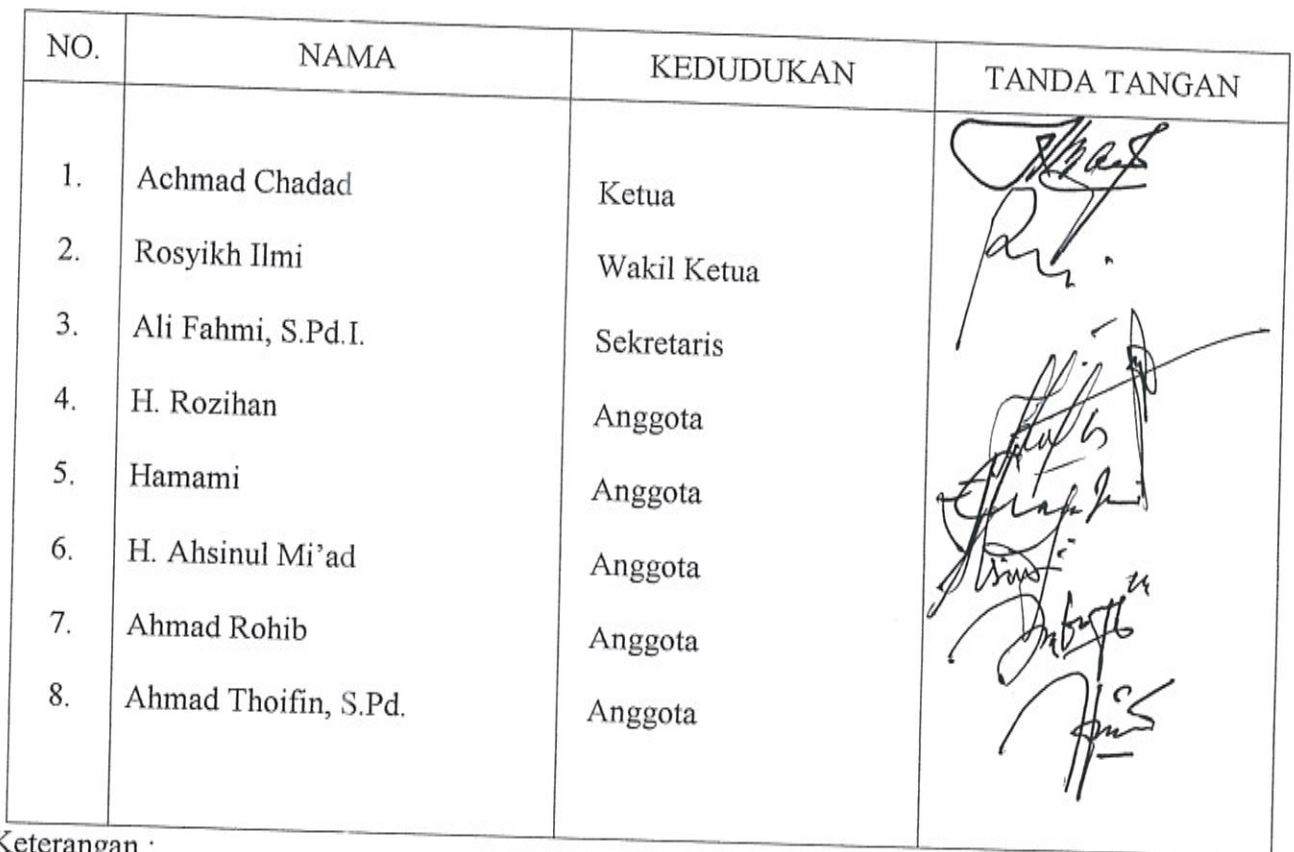 NO. NAMA KEDUDUKAN TANDA TANGAN
1. Achmad Chadad Ketua
2. Rosyikh Ilmi Wakil Ketua
3. Ali Fahmi, S.Pd.I. Sekretaris
4. H. Rozihan Anggota
5. Hamami Anggota
6. H. Ahsinul Mi’ad Anggota
7. Ahmad Rohib Anggota
8. Ahmad Thoifin, S.Pd. Anggota
Keterangan :